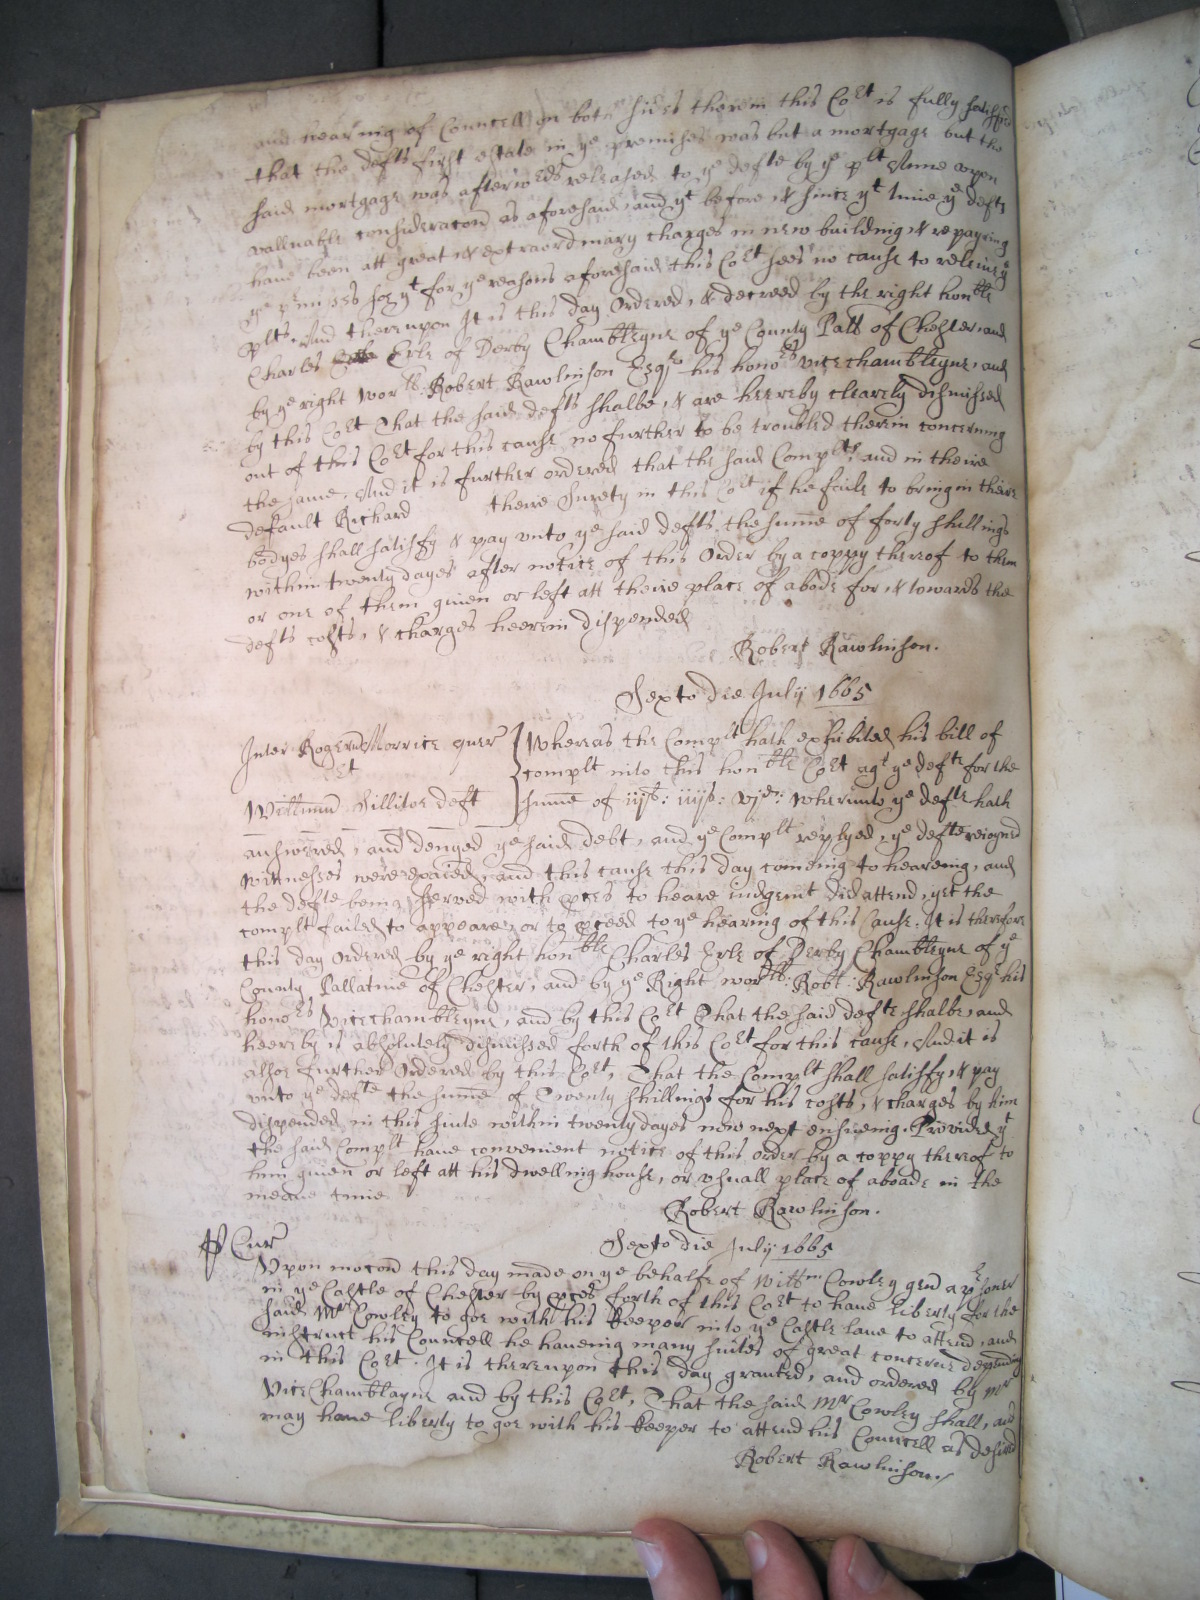 and hearing of Councell on both sides therein this Cort is fully satisfied
that the defts first estate in ye premises was but a mortgage but the
said mortgage was afterwds released to ye defte by ye plt Anne vpon
valluable consideracon as aforesaid, and yt before & since yt time ye defts
haue been att great & extraordinary charges in new building & repayring
ye premisses soe yt for ye reasons aforesaid this Cort sees no cause to releiue ye
plts. And therevpon It is this day Ordered, & decreed by the right honble
Charles Erle of Derby Chamblleyne of ye County Palt of Chester and
by ye right worll: Robert Rawlinson Esqr his honors vicechambleyne, and
by this Cort That the said defts shalbe, & are heereby clearely dismissed
out of this Cort for this cause no further to be troubled therein concerning
the same. And it is further ordered that the said Complts and in theire
default Richard theire Surety in this Cort if he faile to bring in theire
bodyes shall satisfy & pay vnto ye said defts the sume of forty shillings
within twenty dayes after notice of this Order by a coppy thereof to them
or one of them giuen or left att theire place of abode for & towards the
defts costs, & charges heerein dispended
Robert Rawlinson.
Sexto die July 1665
Inter Rogerum Morrice quer
Et
Willmum Sillitoe deft
Whereas the Complt hath exhibited his bill of
complt into this honble Cort agt ye defte for the
sume of iijl: iiijs: vjd: wherunto ye defte hath
answered, and denyed ye said debt, and ye Complt replyed, ye defte reioyned
wittnesses were exaied, and this cause this day coming to heareing, and
the defte being served with pces to heare iudgemt did attend, yet the
complt failed to appeare, or to pceed to ye hearing of this Cause. It is therefore
this day Ordered by ye right honble Charles Erle of Derby Chambleyne of ye
County Pallatine of Chester, and by ye Right worll: Robt: Rawlinson Esqr his
honors Vicechambleyne, and by this Cort That the said defte shalbe, and
heereby is absolutely dismissed forth of this Cort for this cause, And it is
alsoe further Ordered by this Cort, That the Complt shall satisfy & pay
vnto ye defte the sume of Twenty shillings for his costs, & charges by him
dispended in this suite within twenty dayes now next ensueing. Provided yt
the said Complt haue convenient notice of this order by a coppy thereof to
him giuen or left att his dwelling house, or vsuall place of aboade in the
meane time
Robert Rawlinson.
P Cur
Sexto die July 1665
Vpon mocon this day made on ye behalfe of Willm Cowley gen a prsoner
in ye Castle of Chester by pces forth of this Cort to haue liberty for the
said Mr Cowley to goe with his keeper into ye Castle lane to attend, and
instruct his Councell he haueing many suites of great concerne depending
in this Cort. It is therevpon this day granted, and ordered by Mr
ViceChamblayne and by this Cort, That the said Mr Cowley shall, and
may haue liberty to goe with his keeper to attend his Councell as desired
Robert Rawlinson./